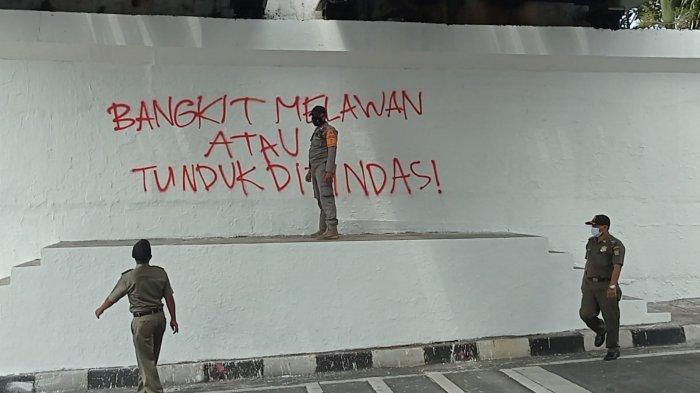 BANGKIT MELAWAN
ATAU
TUNDUK DITINDAS!